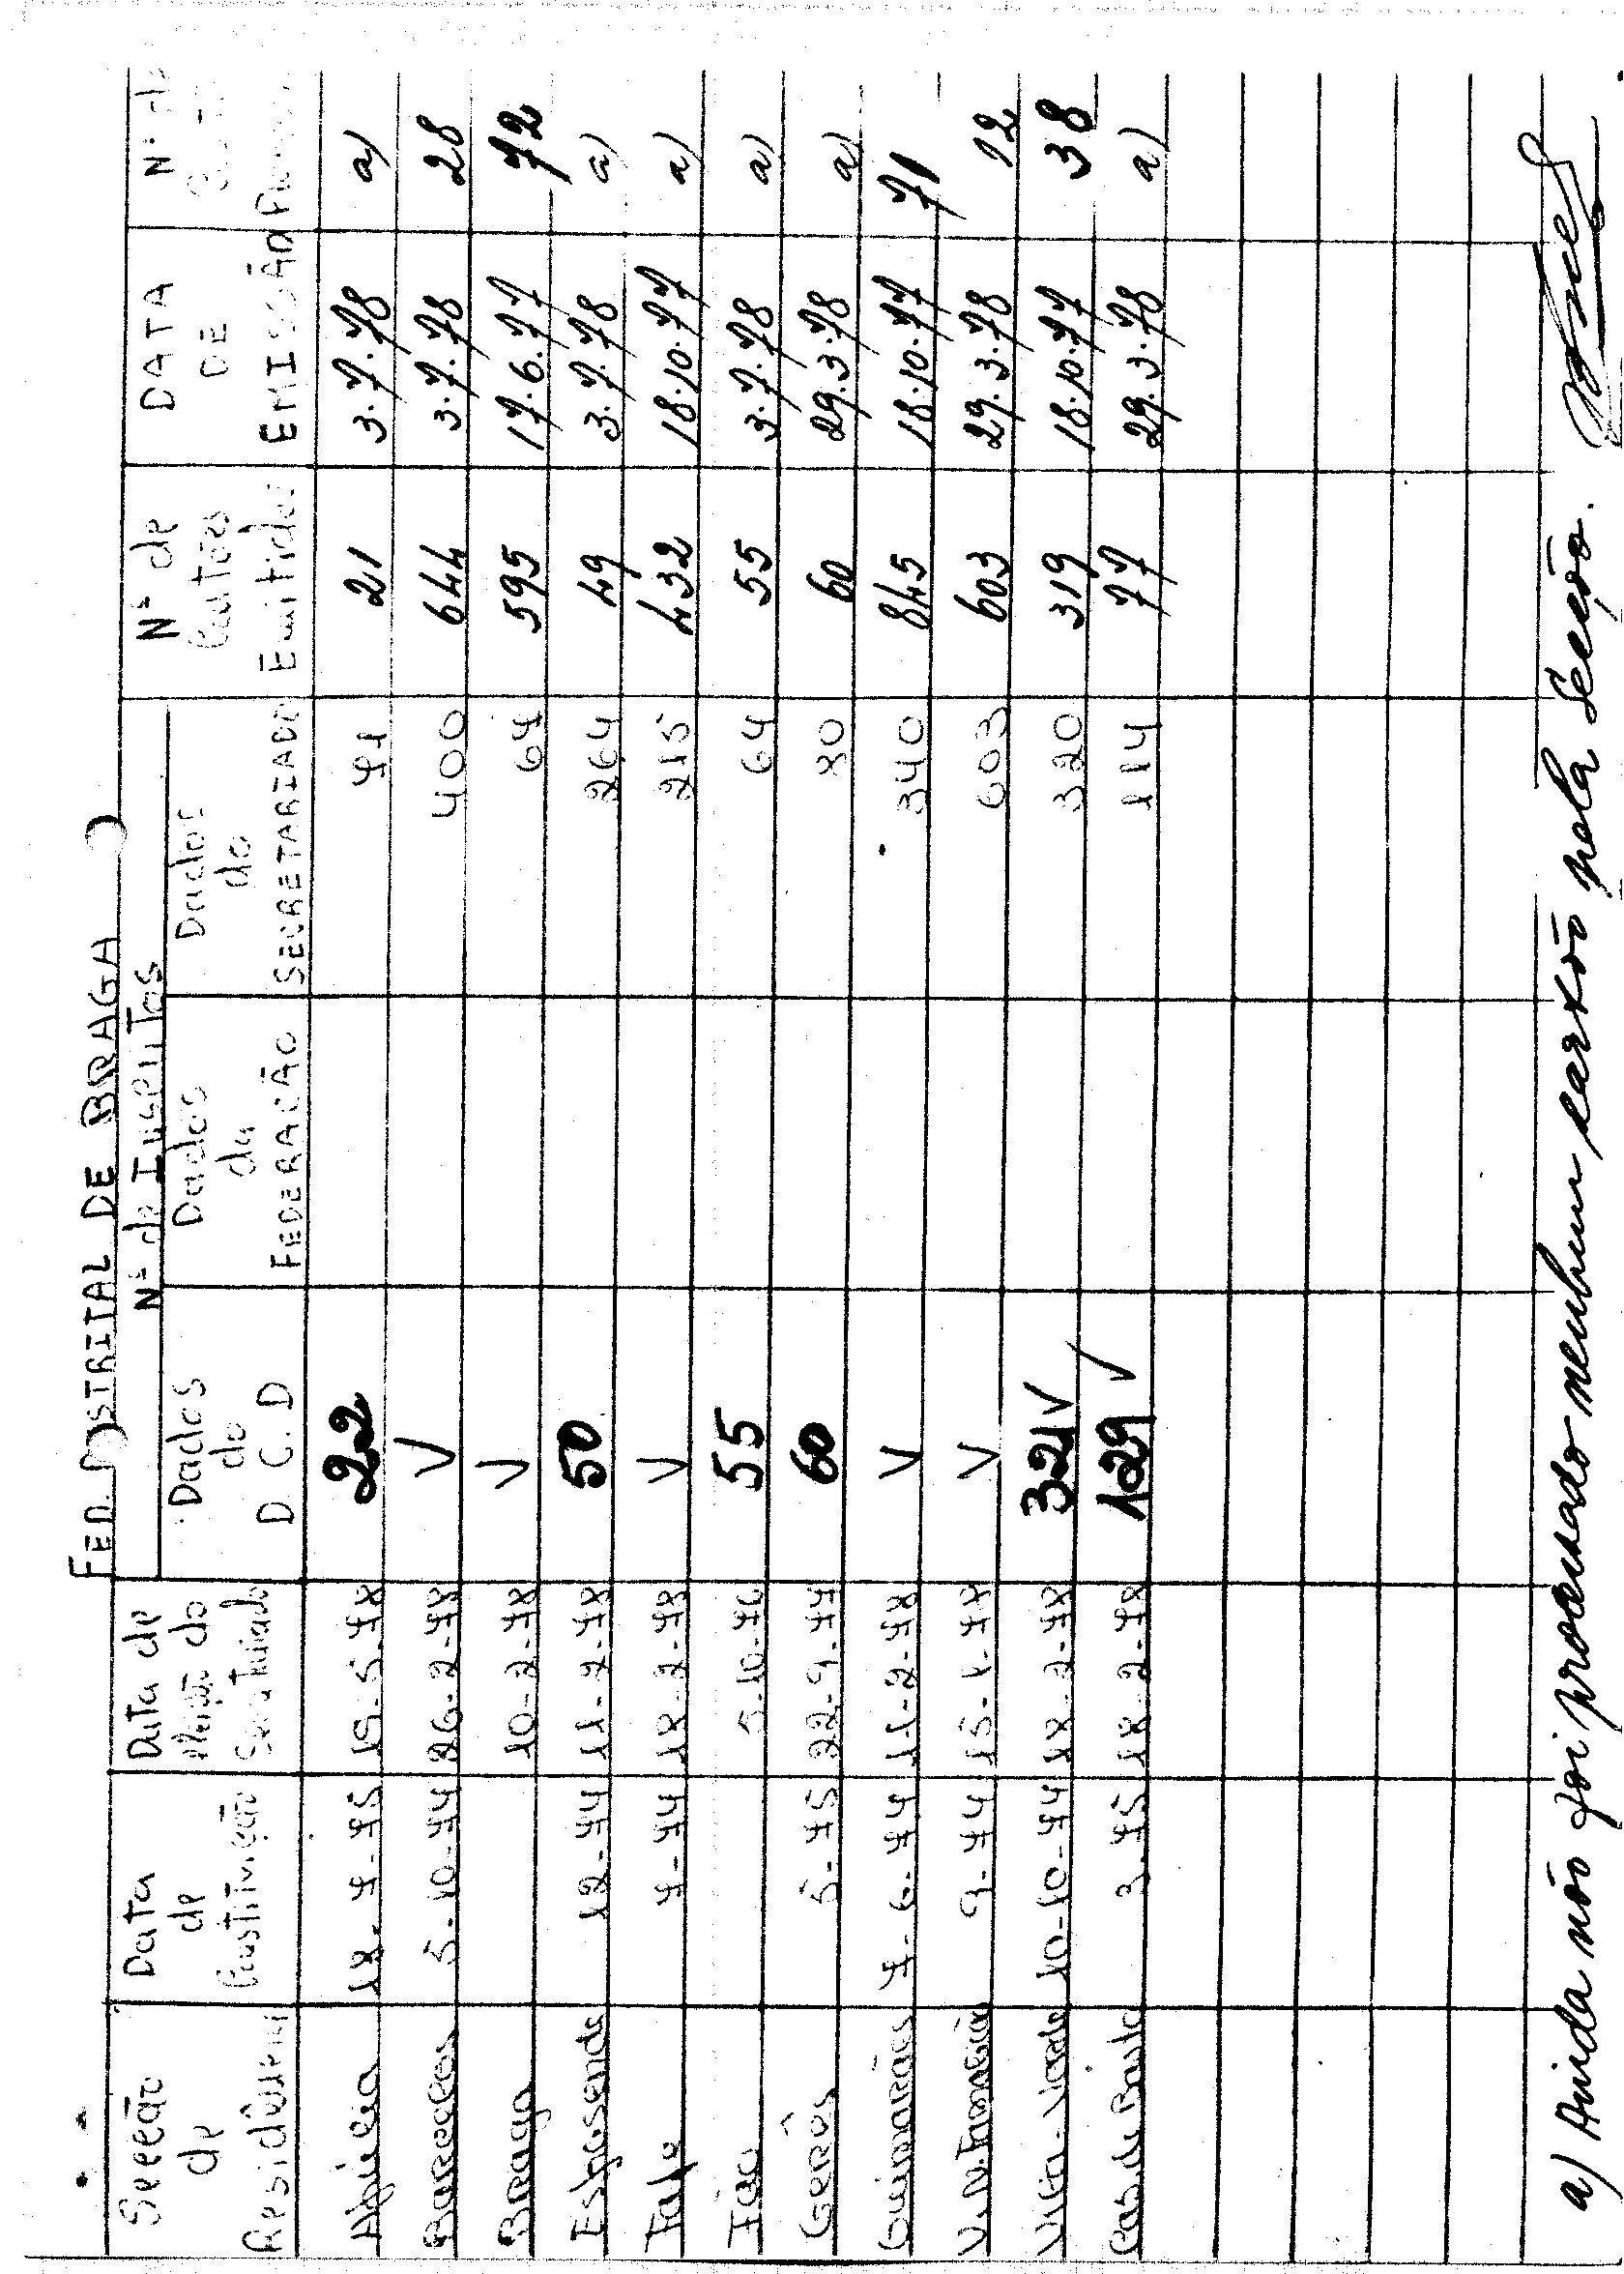 FED. DISTRITAL DE BRAGA
Nº de Inscritos
Secção de Residência | Data de Constituição | Data de eleição do Secretariado | Dados do D.C.D | Dados da FEDERAÇÃO | Dados do SECRETARIADO | Nº de Cartões Emitidos | DATA DE EMISSÃO | Nº de
18-7-75 19-5-78 22 21 3.7.78 a)
Barcelos 5-10-74 26-2-78 V 400 644 3.7.78 28
Braga 10-2-78 V 595 17.6.77 72
Esposende 12-74 11-2-78 50 264 49 3.7.78 a)
Fafe 7-74 18-2-78 V 215 432 18.10.77 a)
5-10-76 55 64 55 3.7.78 a)
Gerês 5-75 22-9-77 60 60 29.3.78 a)
Guimarães 7-6-74 11-2-78 V 340 845 18.10.77 71
V. N. Famalicão 9-74 15-1-78 V 603 603 29.3.78 12
Vila Verde 10-10-74 18-2-78 321 V 320 319 18.10.77 38
Cab. de Basto 3-75 18-2-78 129 V 114 77 29.3.78 a)
a) Ainda não foi processado nenhum cartão pela Secção.